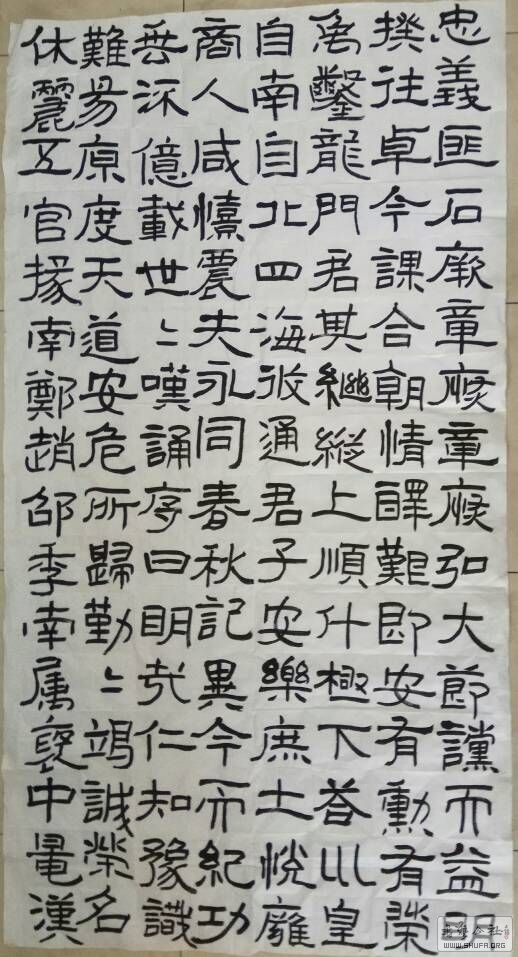 忠義匪石厥章恢章恢弘大節讜而益明
揆往卓今課合朝情醳艱即安有勳有榮
禹鑿龍門君其繼縱上順什極下荅巛皇
自南自北四海攸通君子安樂庶士悅廱
商人咸憘震夫永同春秋記異今而紀功
垂流億載世〻嘆誦序曰明哉仁知豫識
難易原度天道安危所歸勤〻竭誠榮名
休麗五官掾南鄭趙邵季南属褒中晁漢
書法公社
WWW.SHUFA.ORG